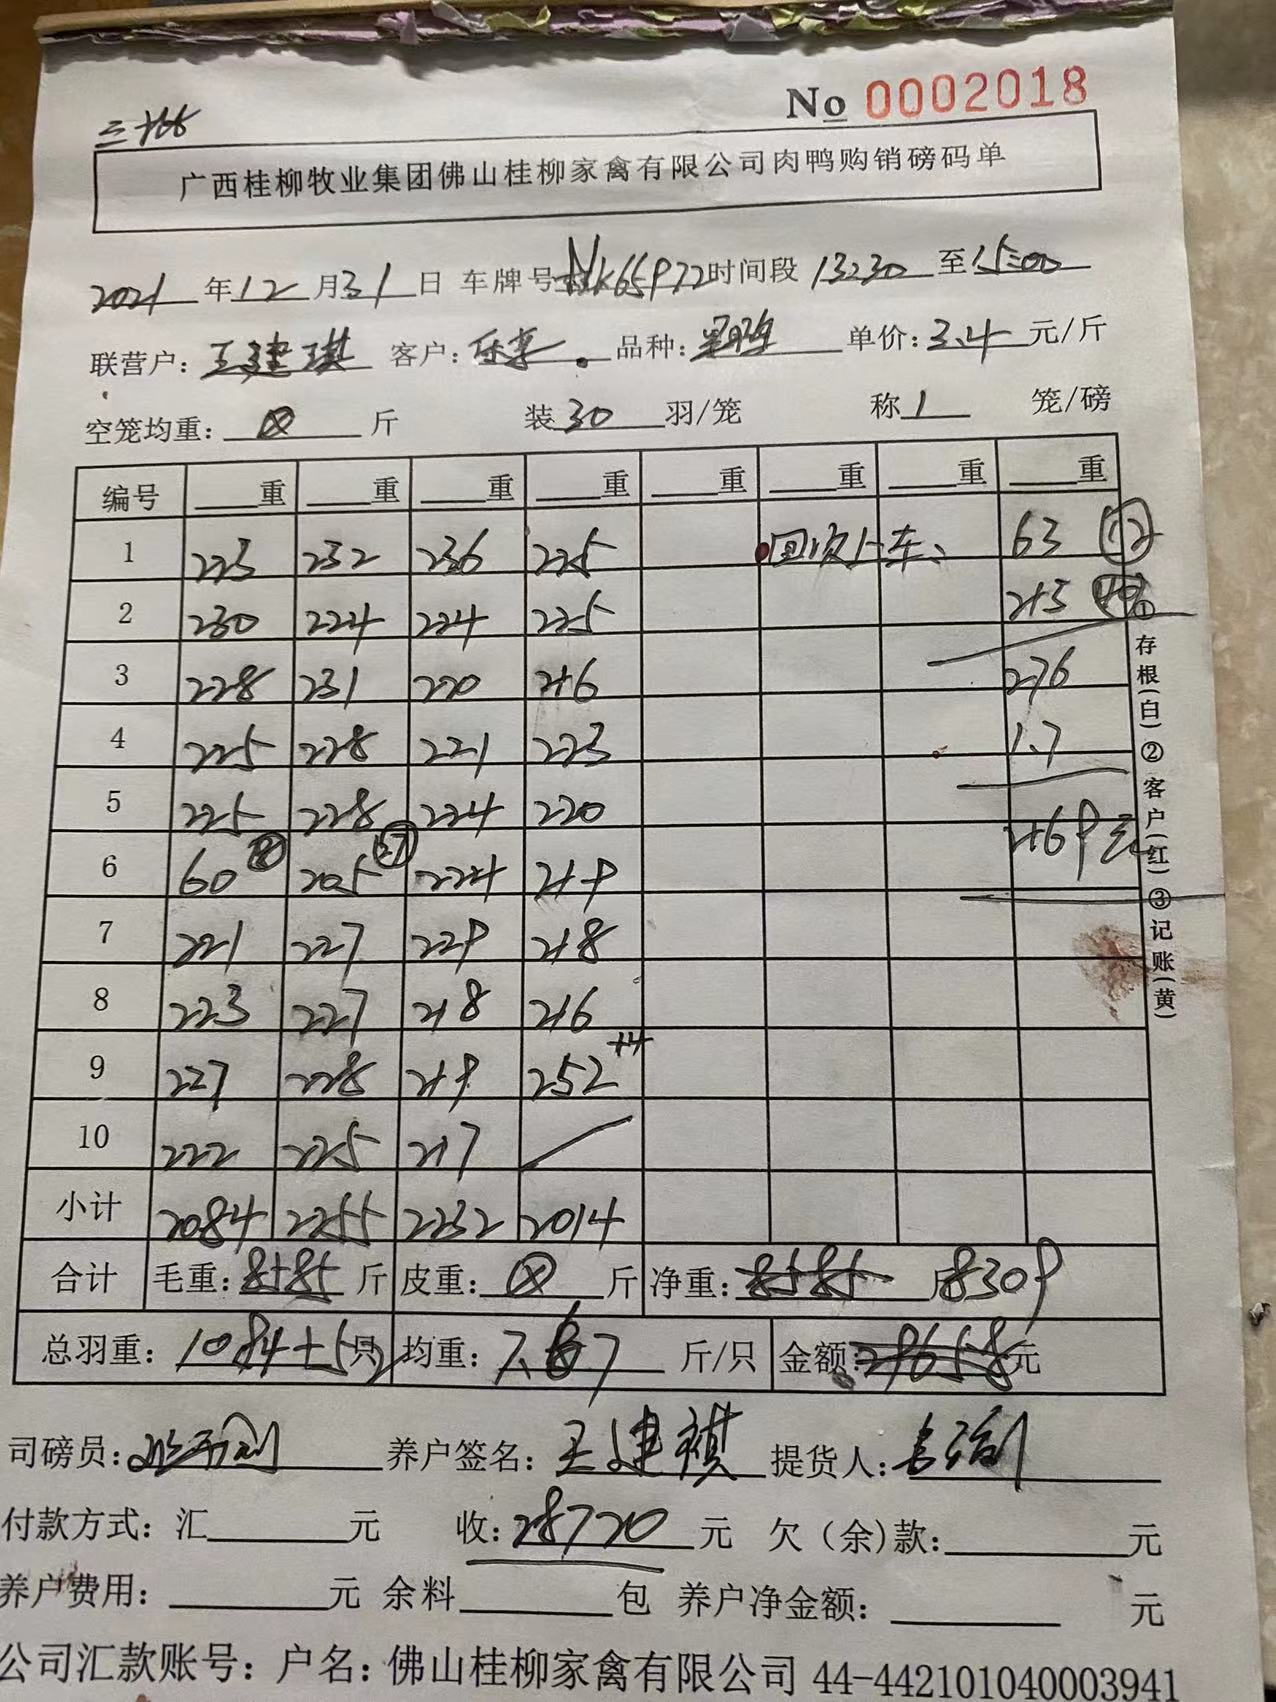 三批
No 0002018
广西桂柳牧业集团佛山桂柳家禽有限公司肉鸭购销磅码单
2021 年 12 月 31 日 车牌号 时间段 13:30 至 15:00
联营户: 王建琪 客户: 品种: 单价: 3.4 元/斤
空笼均重: ⊗ 斤 装 30 羽/笼 称 1 笼/磅
编号 重 重 重 重 重 重 重 重
1 223 232 236 225 回收上车、 63 ⑫
2 230 224 224 225 213
3 228 231 220 216 276
4 225 228 221 223 1.7
5 225 228 224 220 469元
6 60 ⑧ 205 ㉗ 224 219
7 221 227 229 218
8 223 227 218 216
9 227 228 219 252 +4
10 222 225 217
小计 2084 2255 2232 2014
合计 毛重: 8585 斤 皮重: ⊗ 斤 净重: 8585 斤 8309
总羽重: 1084+52 只 均重: 7.67 斤/只 金额: 29658 元
司磅员: 养户签名: 王建祺 提货人:
付款方式: 汇 元 收: 28720 元 欠(余)款: 元
养户费用: 元 余料 包 养户净金额: 元
公司汇款账号: 户名: 佛山桂柳家禽有限公司 44-442101040003941
①存根(白)②客户(红)③记账(黄)